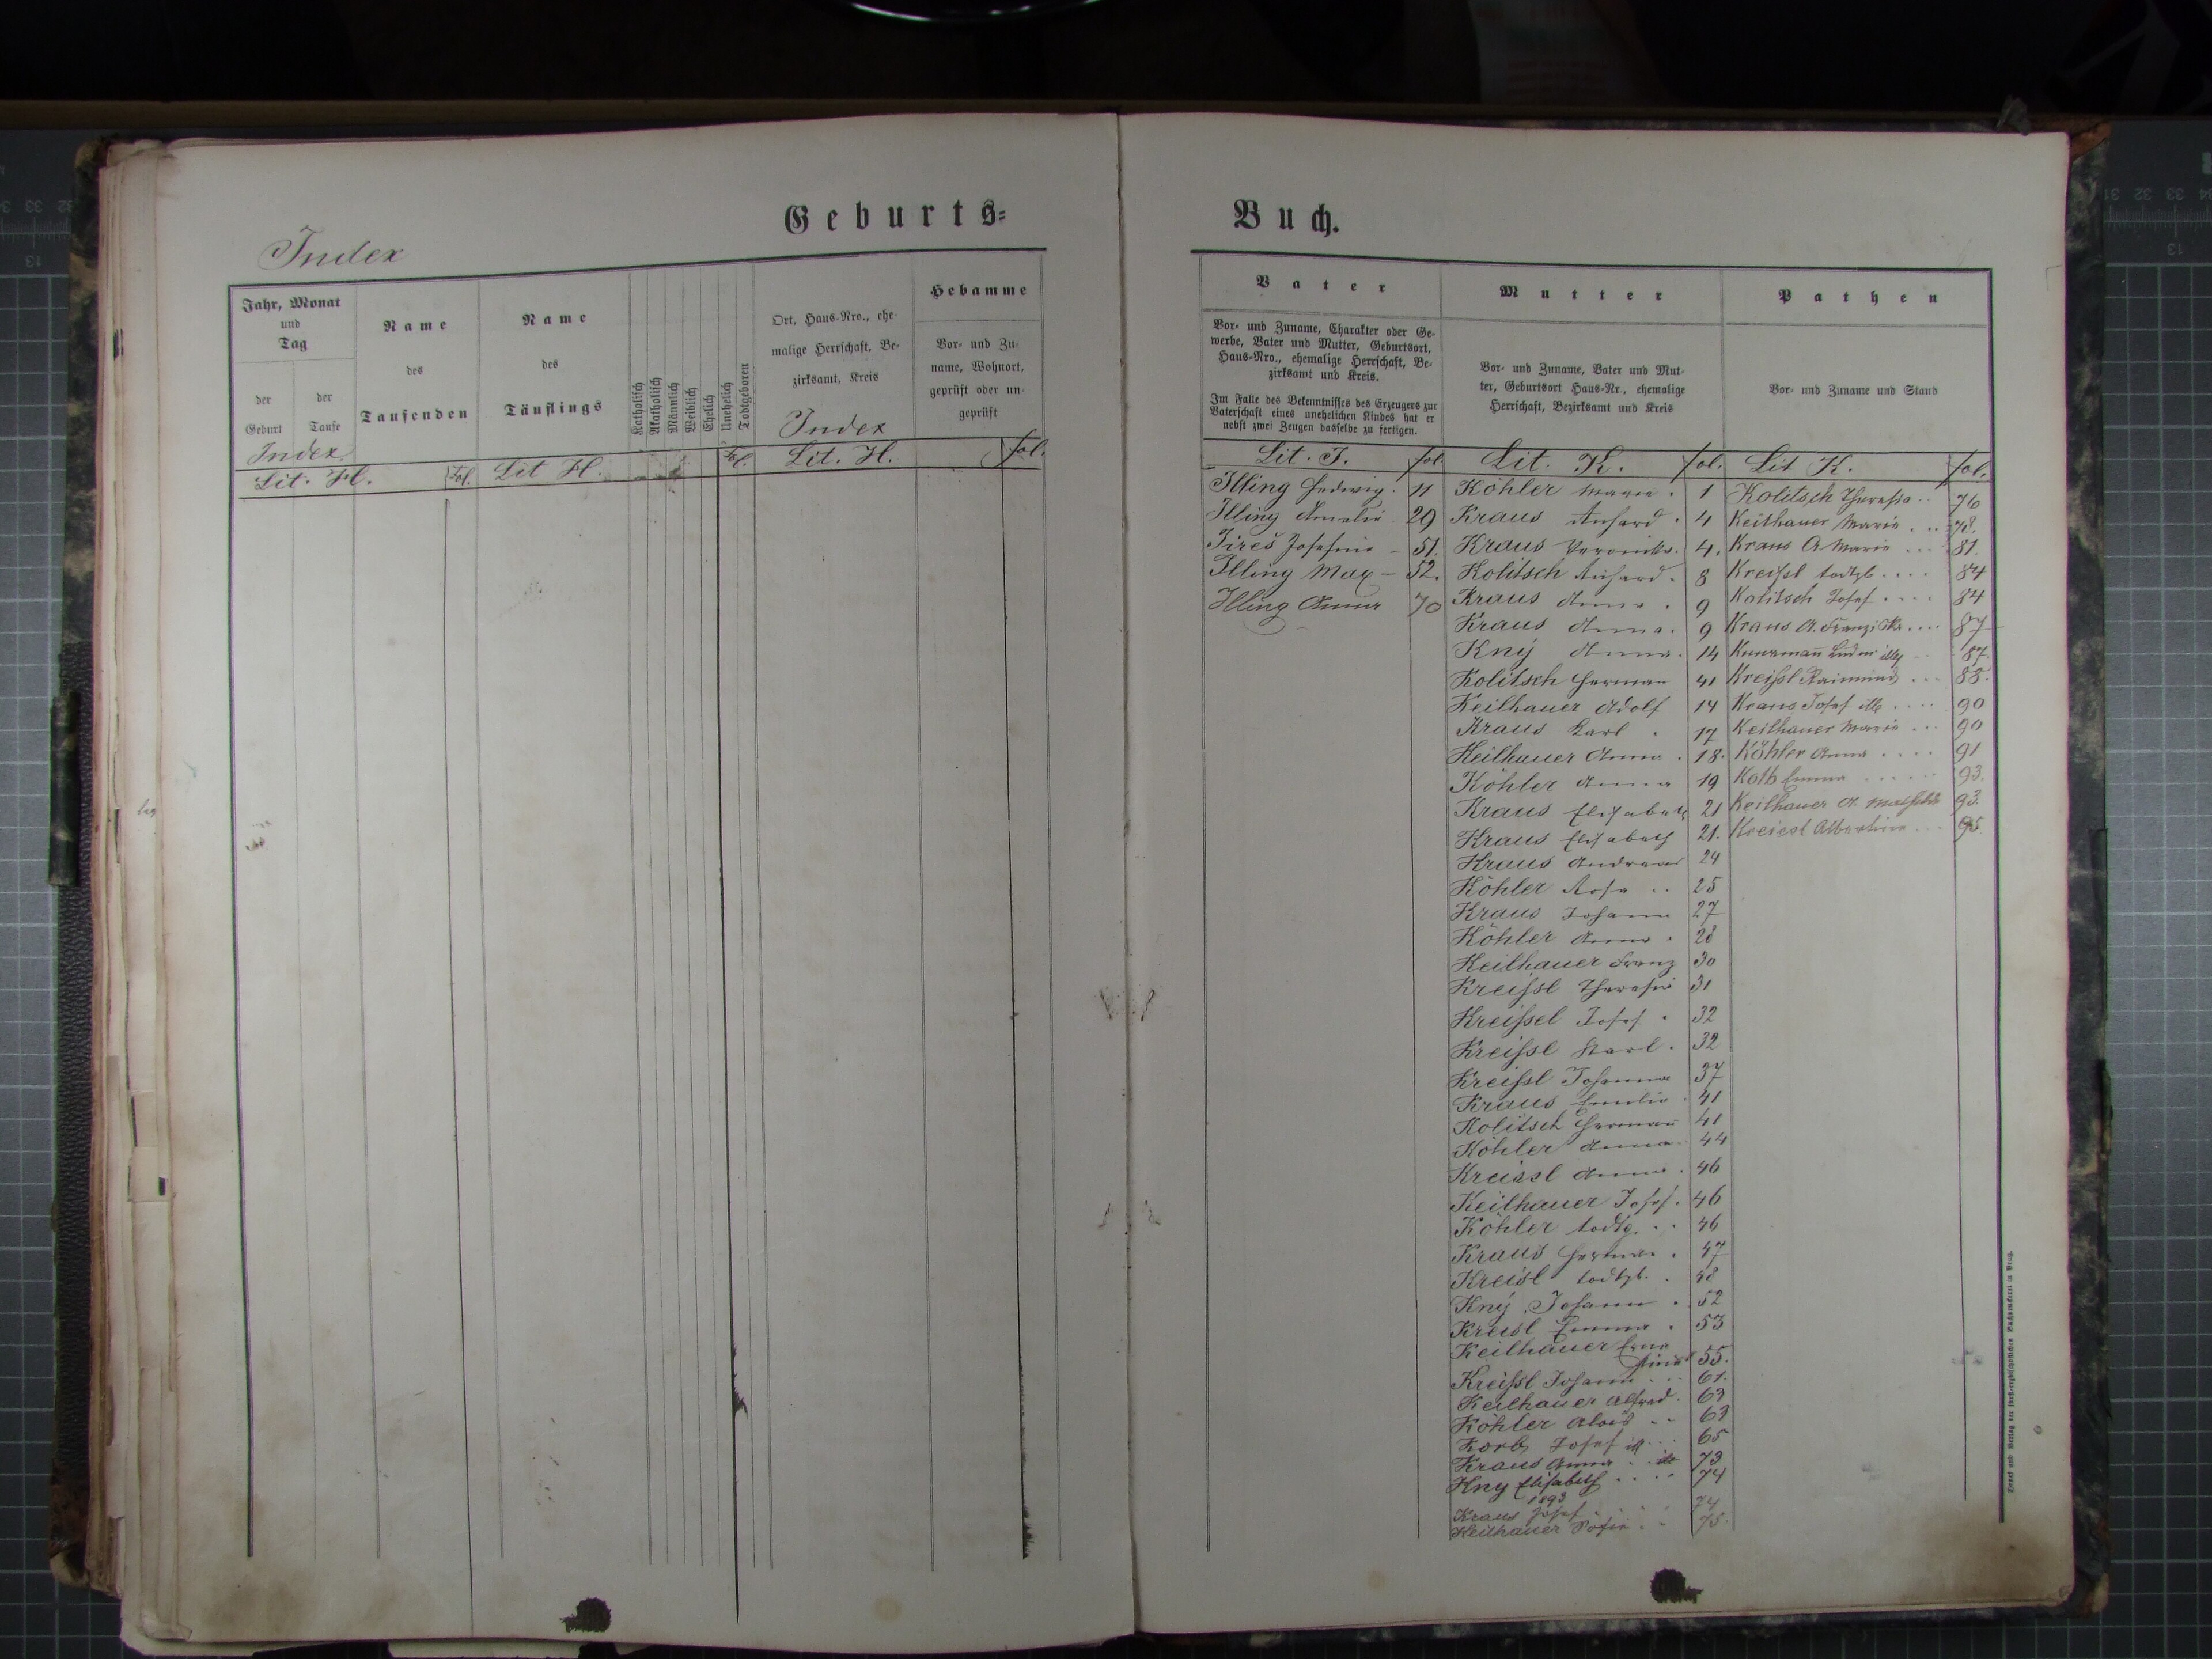 Geburts=
Index
Jahr, Monat
und
Tag
der
Geburt
der
Taufe
Name
des
Taufenden
Name
des
Täuflings
Katholisch
Akatholisch
Männlich
Weiblich
Ehelich
Unehelich
Todtgeboren
Ort, Haus-Nro., ehe-
malige Herrschaft, Be-
zirksamt, Kreis
Hebamme
Vor- und Zu-
name, Wohnort,
geprüft oder un-
geprüft
Index
Index
Lit. H. Fol. Lit H. Fol. Lit. H. fol.
Buch.
Vater
Vor- und Zuname, Charakter oder Ge-
werbe, Vater und Mutter, Geburtsort,
Haus-Nro., ehemalige Herrschaft, Be-
zirksamt und Kreis.
Im Falle des Bekenntnisses des Erzeugers zur
Vaterschaft eines unehelichen Kindes hat er
nebst zwei Zeugen dasselbe zu fertigen.
Mutter
Vor- und Zuname, Vater und Mut-
ter, Geburtsort Haus-Nr., ehemalige
Herrschaft, Bezirksamt und Kreis
Pathen
Vor- und Zuname und Stand
Lit. I. fol.
Illing Hedwig. 11
Illing Amalia 29
Jireš Josefine - 51.
Illing Max - 52.
Illing Anna 70
Lit. K. fol.
Köhler Maria. 1
Kraus Richard. 4
Kraus Veronika. 4.
Kolitsch Richard. 8
Kraus Anna. 9
Kraus Anna. 9
Kný Anna. 14
Kolitsch Herman 41
Keilhauer Adolf 14
Kraus Karl. 17
Keilhauer Anna. 18.
Köhler Anna 19
Kraus Elisabeth 21
Kraus Elisabeth 21.
Kraus Andreas 24
Köhler Rosa .. 25
Kraus Johann 27
Köhler Anna. 28
Keilhauer Franz 30
Kreißl Theresia 31
Kreißel Josef. 32
Kreißl Karl. 32
Kreißl Johanna 37
Kraus Emilie. 41
Kolitsch Hermañ 41
Köhler Anna 44
Kreissl Anna. 46
Keilhauer Josef. 46
Köhler todtg. .. 46
Kraus Herman. 47
Kreisl todtgb. . 48
Kný Johann. 52
Kreisl Emma. 53
Keilhauer Erne
stine 55.
Kreißl Johann ... 61.
Keilhauer Alfred. 63
Köhler Alois -- 63
Korb Josef ill ... 65
Kraus Anna .. 73
Kny Elisabeth .... 74
1893
Kraus Josef .... 74
Keilhauer Sofie. .. 75.
Lit K. fol.
Kolitsch Theresia .. 76
Keilhauer Maria ... 78.
Kraus A. Maria ... 81.
Kreißl todtgb. .... 84
Kolitsch Josef .... 84
Kraus A. Franziska .... 87
Kunzmañ 87.
Kreißl Raimund ... 88.
Kraus Josef ille .... 90
Keilhauer Maria ... 90
Köhler Anna .... 91
Kolb Emma ...... 93.
Keilhauer A. Mathilde 93.
Kreissl Albertine ... 95
Druck und Verlag der fürst-erzbischöflichen Buchdruckerei in Prag.